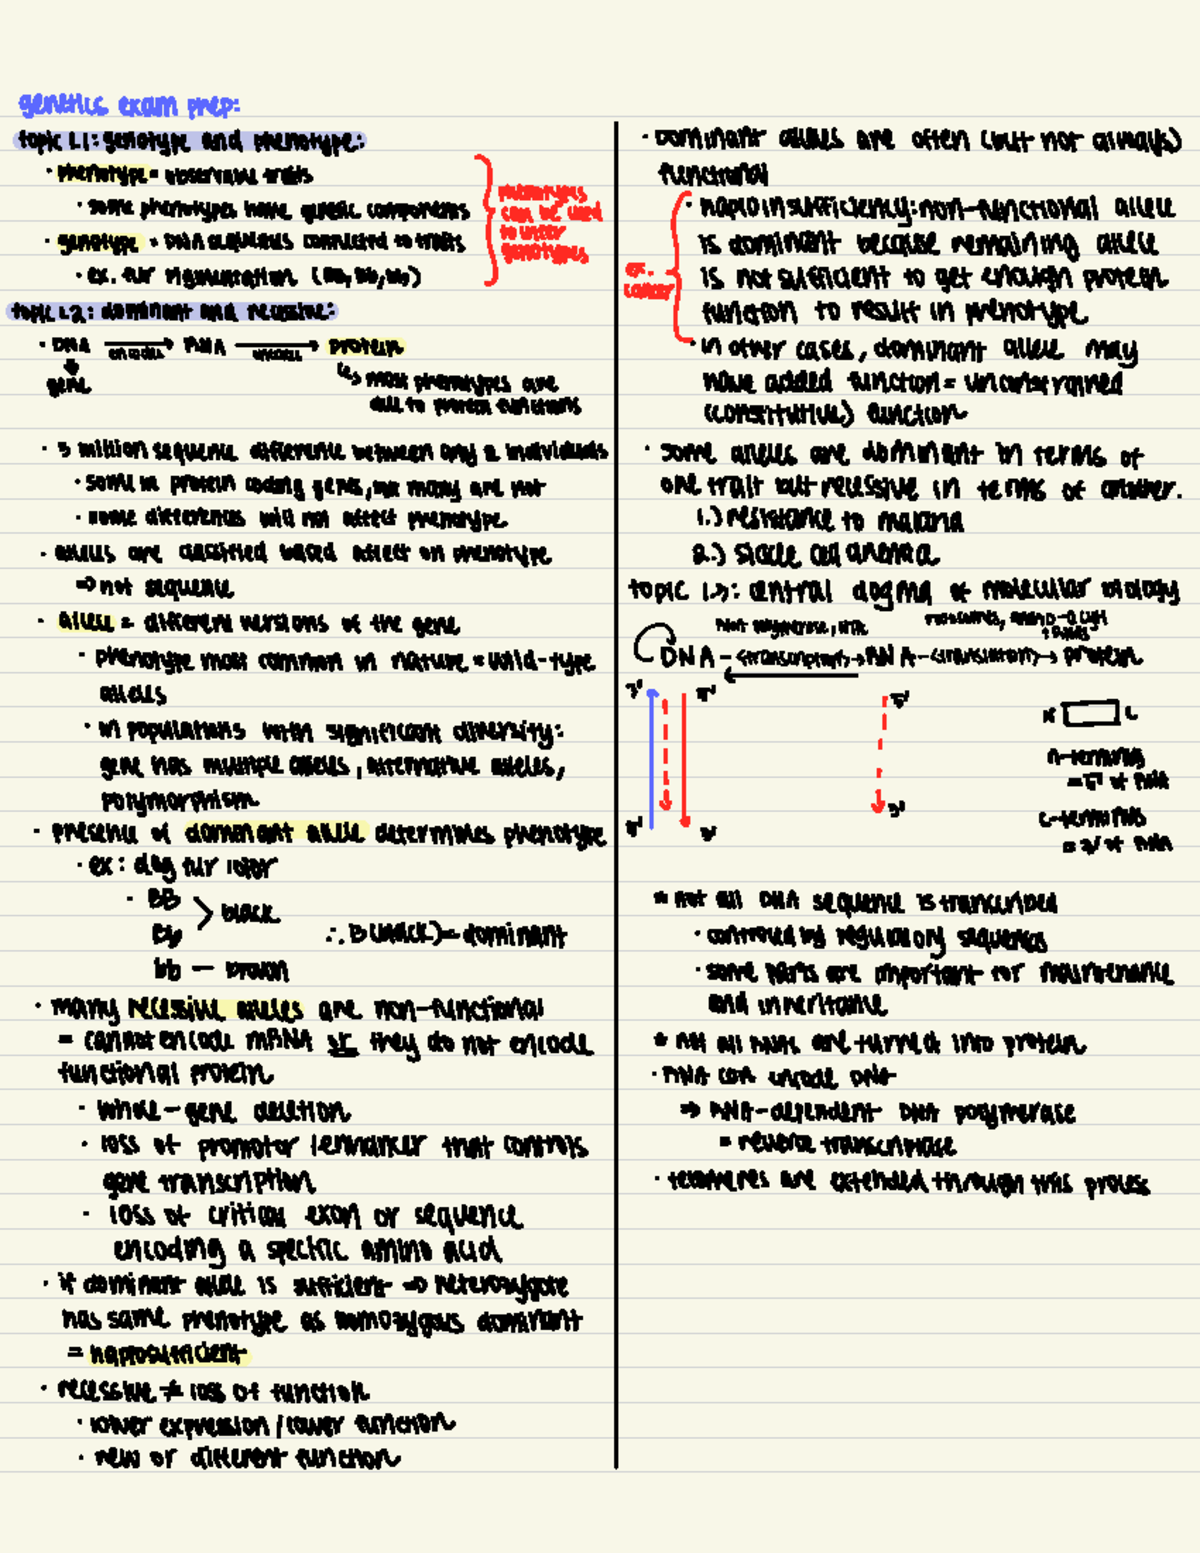 genetics exam prep:
topic 1.1: genotype and phenotype:
· phenotype = observable traits
· some phenotypes have genetic components
· genotype = DNA sequences connected to traits
· ex. fur pigmentation (BB, Bb, bb)
phenotypes
can be used
to infer
genotypes
topic 1.2: dominant and recessive:
· DNA encodes → RNA encodes → protein
gene
↳ most phenotypes are
due to protein functions
· 3 million sequence difference between only 2 individuals
· some in protein coding genes, but many are not
· some differences will not affect phenotype
· alleles are classified based affect on phenotype
⇒ not sequence
· allele = different versions of the gene
· phenotype most common in nature = wild-type
alleles
· in populations with significant diversity:
gene has multiple alleles, alternative alleles,
polymorphism
· presence of dominant allele determines phenotype
· ex: dog fur color
· BB
Bb > black
∴ B (black) = dominant
bb — brown
· many recessive alleles are non-functional
= cannot encode mRNA or they do not encode
functional protein
· whole-gene deletion
· loss of promotor / enhancer that controls
gene transcription
· loss of critical exon or sequence
encoding a specific amino acid
· if dominant allele is sufficient ⇒ heterozygote
has same phenotype as homozygous dominant
= haplosufficient
· recessive ≠ loss of function
· lower expression / lower function
· new or different function
· dominant alleles are often (but not always)
functional
· haploinsufficiency: non-functional allele
is dominant because remaining allele
is not sufficient to get enough protein
function to result in phenotype
ex.
cancer
· in other cases, dominant allele may
have added function = unconstrained
(constitutive) function
· some alleles are dominant in terms of
one trait but recessive in terms of another.
1.) resistance to malaria
2.) sickle cell anemia
topic 1.3: central dogma of molecular biology
RNA polymerase, NTPs
ribosomes, amino-acyl
tRNAs
DNA -(transcription)→ RNA -(translation)→ protein
3' 5' 5'
N C
n-terminus
= 5' of RNA
5' 3' 3'
c-terminus
= 3' of RNA
* not all DNA sequence is transcribed
· controlled by regulatory sequences
· some parts are important for maintenance
and inheritance
* not all RNAs are turned into protein
· RNA can encode DNA
⇒ RNA-dependent DNA polymerase
= reverse transcriptase
· telomeres are extended through this process